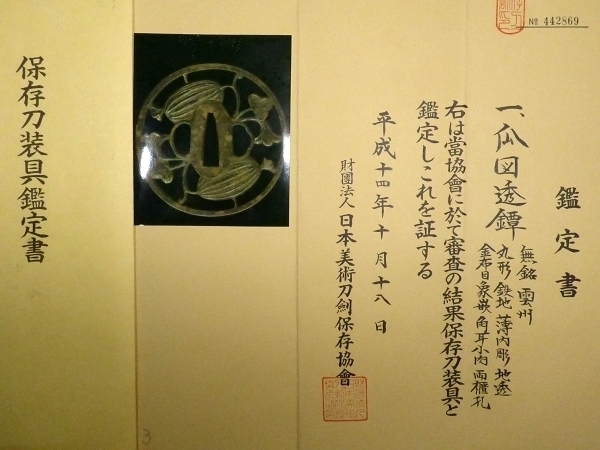 № 442869
鑑定書
一、瓜図透鐔
無銘 雲州
丸形 鉄地 薄肉彫 地透
金布目象嵌 角耳小肉 両櫃孔
右は當協會に於て審査の結果保存刀装具と
鑑定しこれを証する
平成十四年十月十八日
財團法人 日本美術刀劍保存協會
保存刀装具鑑定書
3